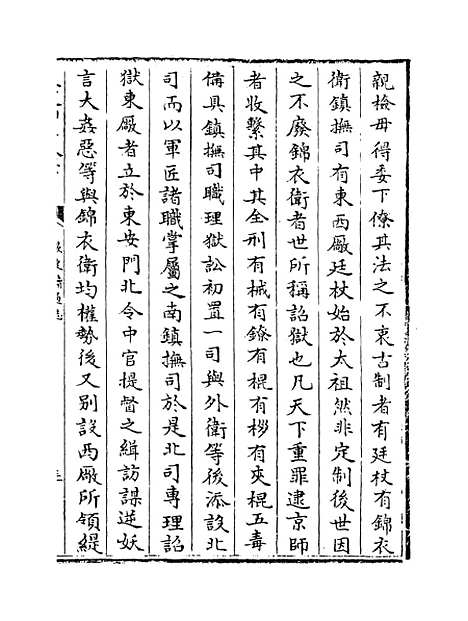 親檢毋得委下僚其法之不衷古制者有廷杖有錦衣
衛鎮撫司有東西廠廷杖始於太祖然非定制後世因
之不廢錦衣衛者世所稱詔獄也凡天下重罪逮京師
者收繫其中其全刑有械有鐐有棍有桚有夾棍五毒
備具鎮撫司職理獄訟初置一司與外衛等後添設北
司而以軍匠諸職掌屬之南鎮撫司於是北司專理詔
獄東廠者立於東安門北令中官提督之緝訪謀逆妖
言大姦惡等與錦衣衛均權勢後又別設西廠所領緹